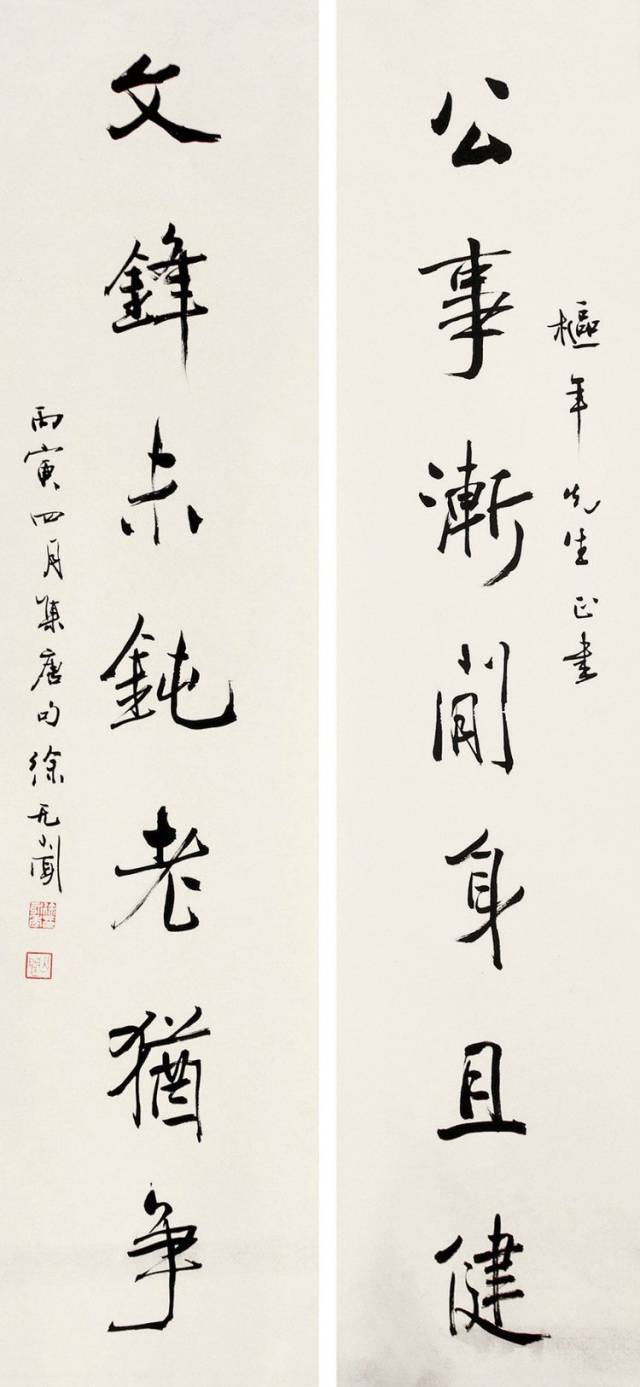 樞年先生正書
公事漸閒身且健
文鋒未鈍老猶爭
丙寅四月集唐句徐无聞